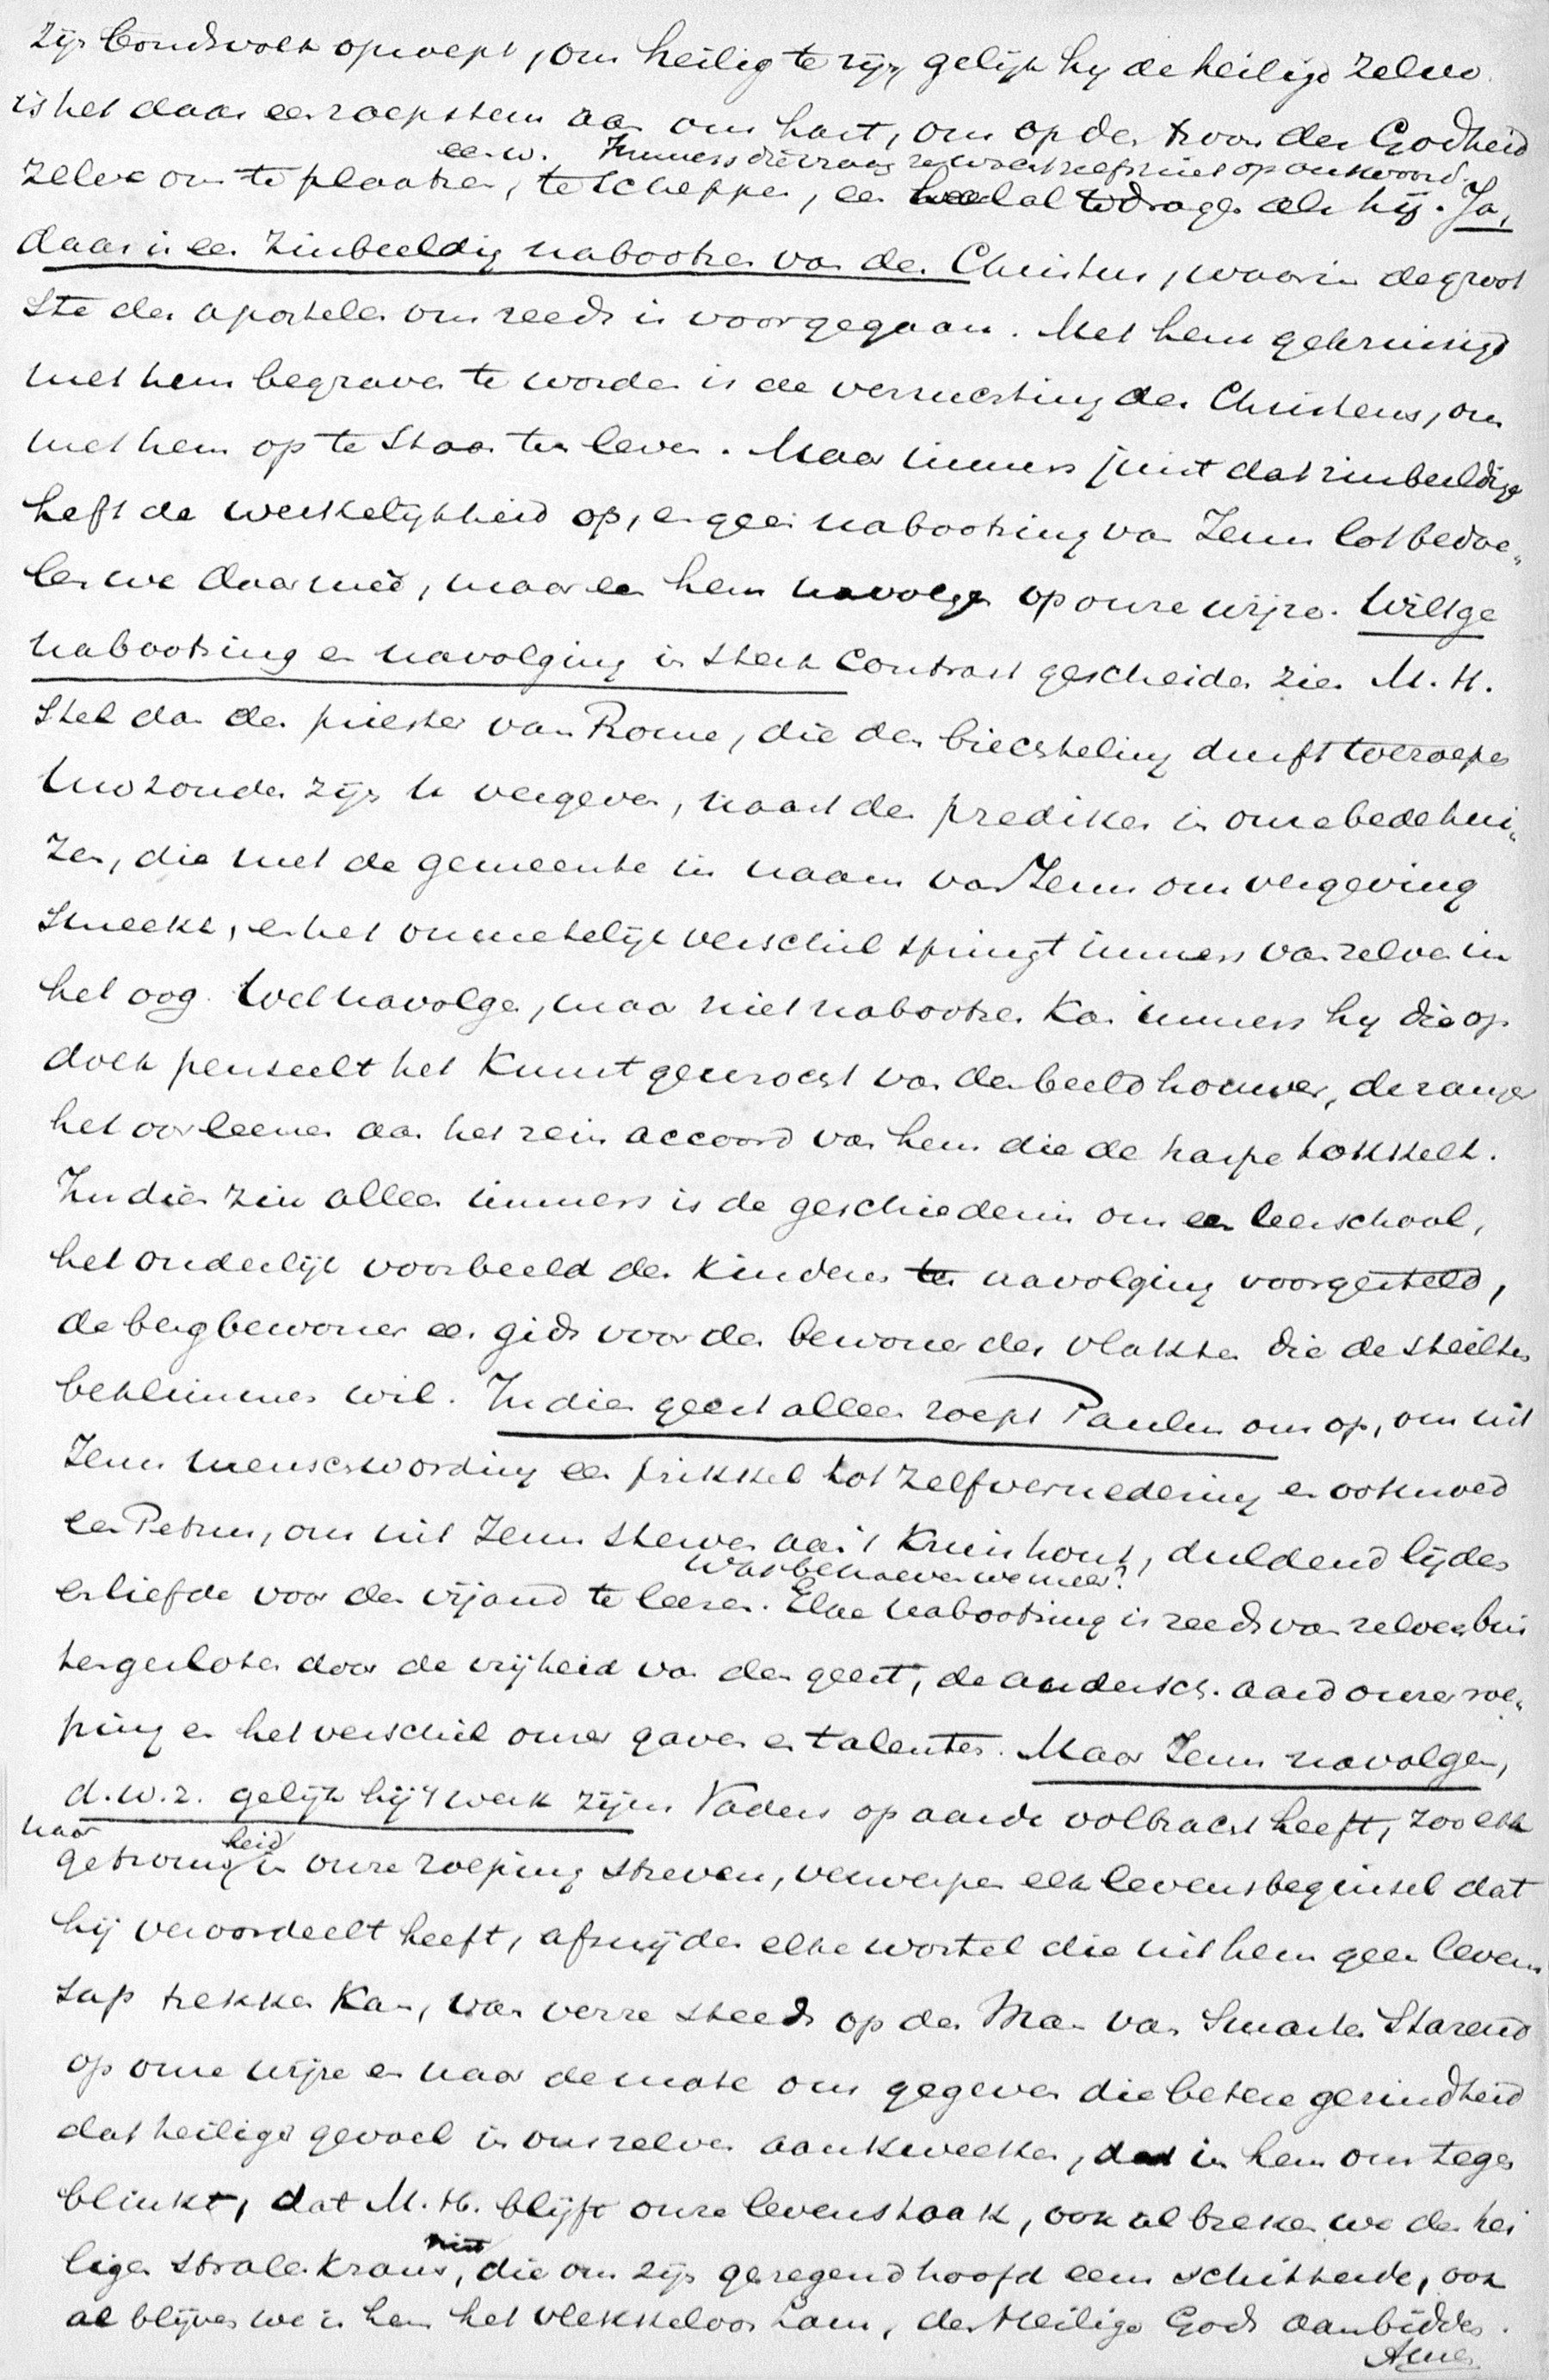 zijn bondsvolk oproept, om heilig te zijn, gelijk hij de heilige zelve.
is het daar een roepstem aan ons hart, om op den troon der Godheid
een w. Immers die vraag zij wacht zelfs niet op antwoord.
zelve ons te plaatsen, te scheppen, een heelal te dragen als hij. Ja,
daar is een zinbeeldig nabootsen van den Christus, waarin de groot
ste der apostelen ons reeds is voorgegaan. Met hem gekruisigd
met hem begraven te worden is de verzuchting der Christens, om
met hem op te staan ten leven. Maar immers juist dat zinbeeldige
heft de werkelijkheid op, en geen nabootsing van Jezus lot bedoe„
len we daarmeê, maar een hem navolgen op onze wijze. Wilt ge
nabootsing en navolging in sterk contrast gescheiden zien M. H.
Stel dan den priester van Rome, die den biechteling durft toeroepen
Uwe zonden zijn u vergeven, naast den prediker in onze bedehui„
zen, die met de gemeente in naam van Jezus om vergeving
smeekt, en het onmetelijk verschil springt immers van zelve in
het oog. Wel navolgen, maar niet nabootsen kan immers hij die op
doek penseelt het kunstgewrocht van den beeldhouwer, de zanger
het oor leenen aan het rein accoord van hem die de harpe tokkelt.
In dien zin alleen immers is de geschiedenis ons een leerschool,
het ouderlijk voorbeeld den kinderen ter navolging voorgesteld,
de bergbewoner een gids voor den bewoner der vlakte die de steilten
beklimmen wil. In dien geest alleen roept Paulus ons op, om uit
Jezus menschwording een prikkel tot zelfvernedering en ootmoed
en Petrus, om uit Jezus sterven aan 't kruishout, duldend lijden
Wat behoeven we meer?
en liefde voor den vijand te leeren. Elke nabootsing is reeds van zelven bui
tengesloten door de vrijheid van den geest, de andersch. aard onzer roe„
ping en het verschil onzer gaven en talenten. Maar Jezus navolgen,
d.w.z. gelijk hij 't werk zijns Vaders op aarde volbracht heeft, zoo elk
naar getrouwheid in onze roeping streven, verwerpen elk levensbeginsel dat
hij veroordeelt heeft, afsnijden elke wortel die uit hem geen levens
sap trekken kan, van verre steeds op den Man van Smarten starend
op onze wijze en naar de mate ons gegeven die betere gezindheid
dat heilige gevoel in ons zelven aankweeken, dat in hem ons tegen
blinkt, dat M. H. blijft onze levenstaak, ook al breken we den hei
ligen stralenkrans niet, die om zijn gezegend hoofd eens schitterde, ook
al blijven we in hem het vlekkeloos Lam, den Heilige Gods aanbidden.
Amen